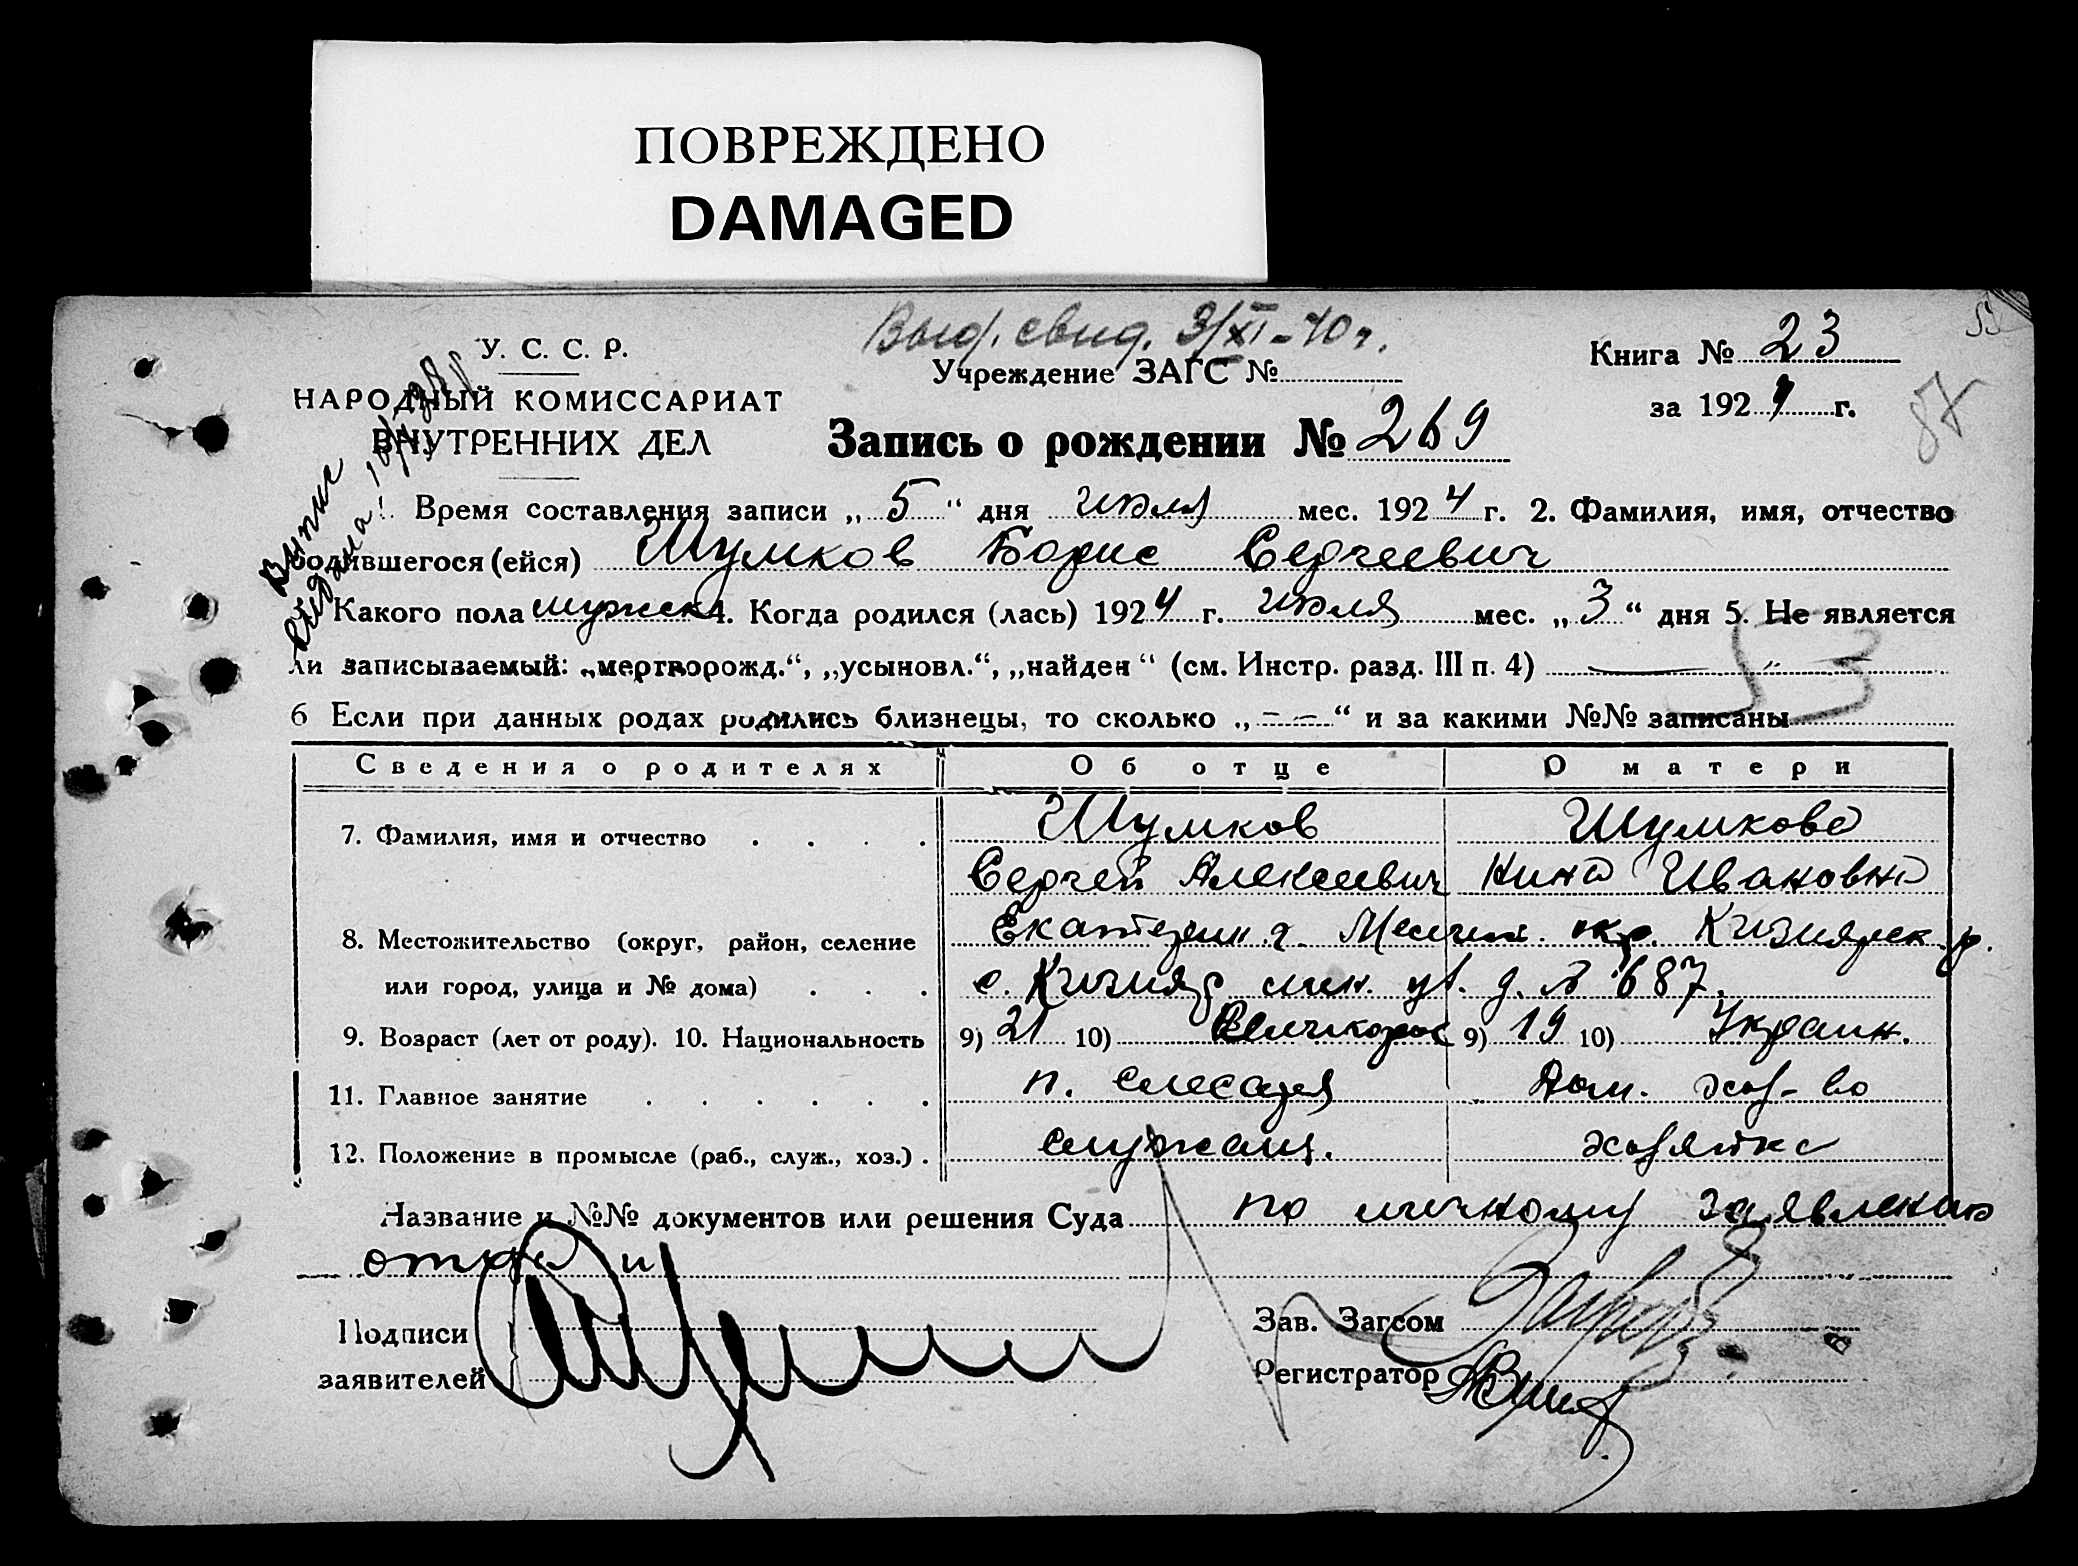 ПОВРЕЖДЕНО
DAMAGED
Выд. свид. 3/XI-40 г.
У. С. С. Р.
НАРОДНЫЙ КОМИССАРИАТ
ВНУТРЕННИХ ДЕЛ
Учреждение ЗАГС №
Запись о рождении № 269
Книга № 23
за 1924 г.
53
87
Выпис
выдана
Время составления записи „ 5 “ дня июля мес. 1924 г. 2. Фамилия, имя, отчество
родившегося (ейся) Шумков Борис Сергеевич
Какого пола мужск 4. Когда родился (лась) 1924 г. июля мес. „ 3 “ дня 5. Не является
ли записываемый: „мертворожд.“, „усыновл.“, „найден“ (см. Инстр. разд. III п. 4)
53
6 Если при данных родах родились близнецы, то сколько „ -- “ и за какими №№ записаны
Сведения о родителях Об отце О матери
7. Фамилия, имя и отчество Шумков Шумкова
Сергей Алексеевич Нина Ивановна
8. Местожительство (округ, район, селение Екатерин. г. Мелит. окр. Кизиярск. р.
или город, улица и № дома) с. Кизияр ул. д. № 687.
9. Возраст (лет от роду). 10. Национальность 9) 21 10) Великорос 9) 19 10) Украин.
11. Главное занятие п. слесаря Дом. хоз-во
12. Положение в промысле (раб., служ., хоз.) служащ. хозяйка
Название и №№ документов или решения Суда по личному заявлению
отца и
Подписи
заявителей
Зав. Загсом
Регистратор